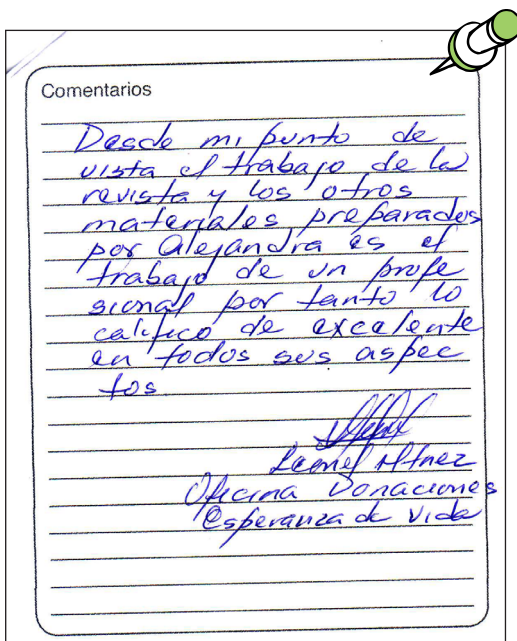 Comentarios
Desde mi punto de
vista el trabajo de la
revista y los otros
materiales preparados
por Alejandra es el
trabajo de un profe
sional por tanto lo
califico de excelente
en todos sus aspec
tos
Leonel
Oficina Donaciones
Esperanza de Vida